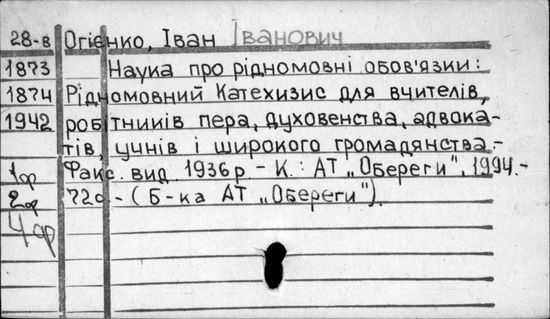 28-в Огієнко, Іван Іванович
1873 Наука про рідномовні обов'язки:
1874 Рідномовний Катехизис для вчителів,
1942 робітників пера, духовенства, адвока-
тів, учнів і широкого громадянства.-
1ф Факс. вид 1936р - К.: АТ „Обереги", 1994.-
2ф 72с - (Б-ка АТ „Обереги").
4ф